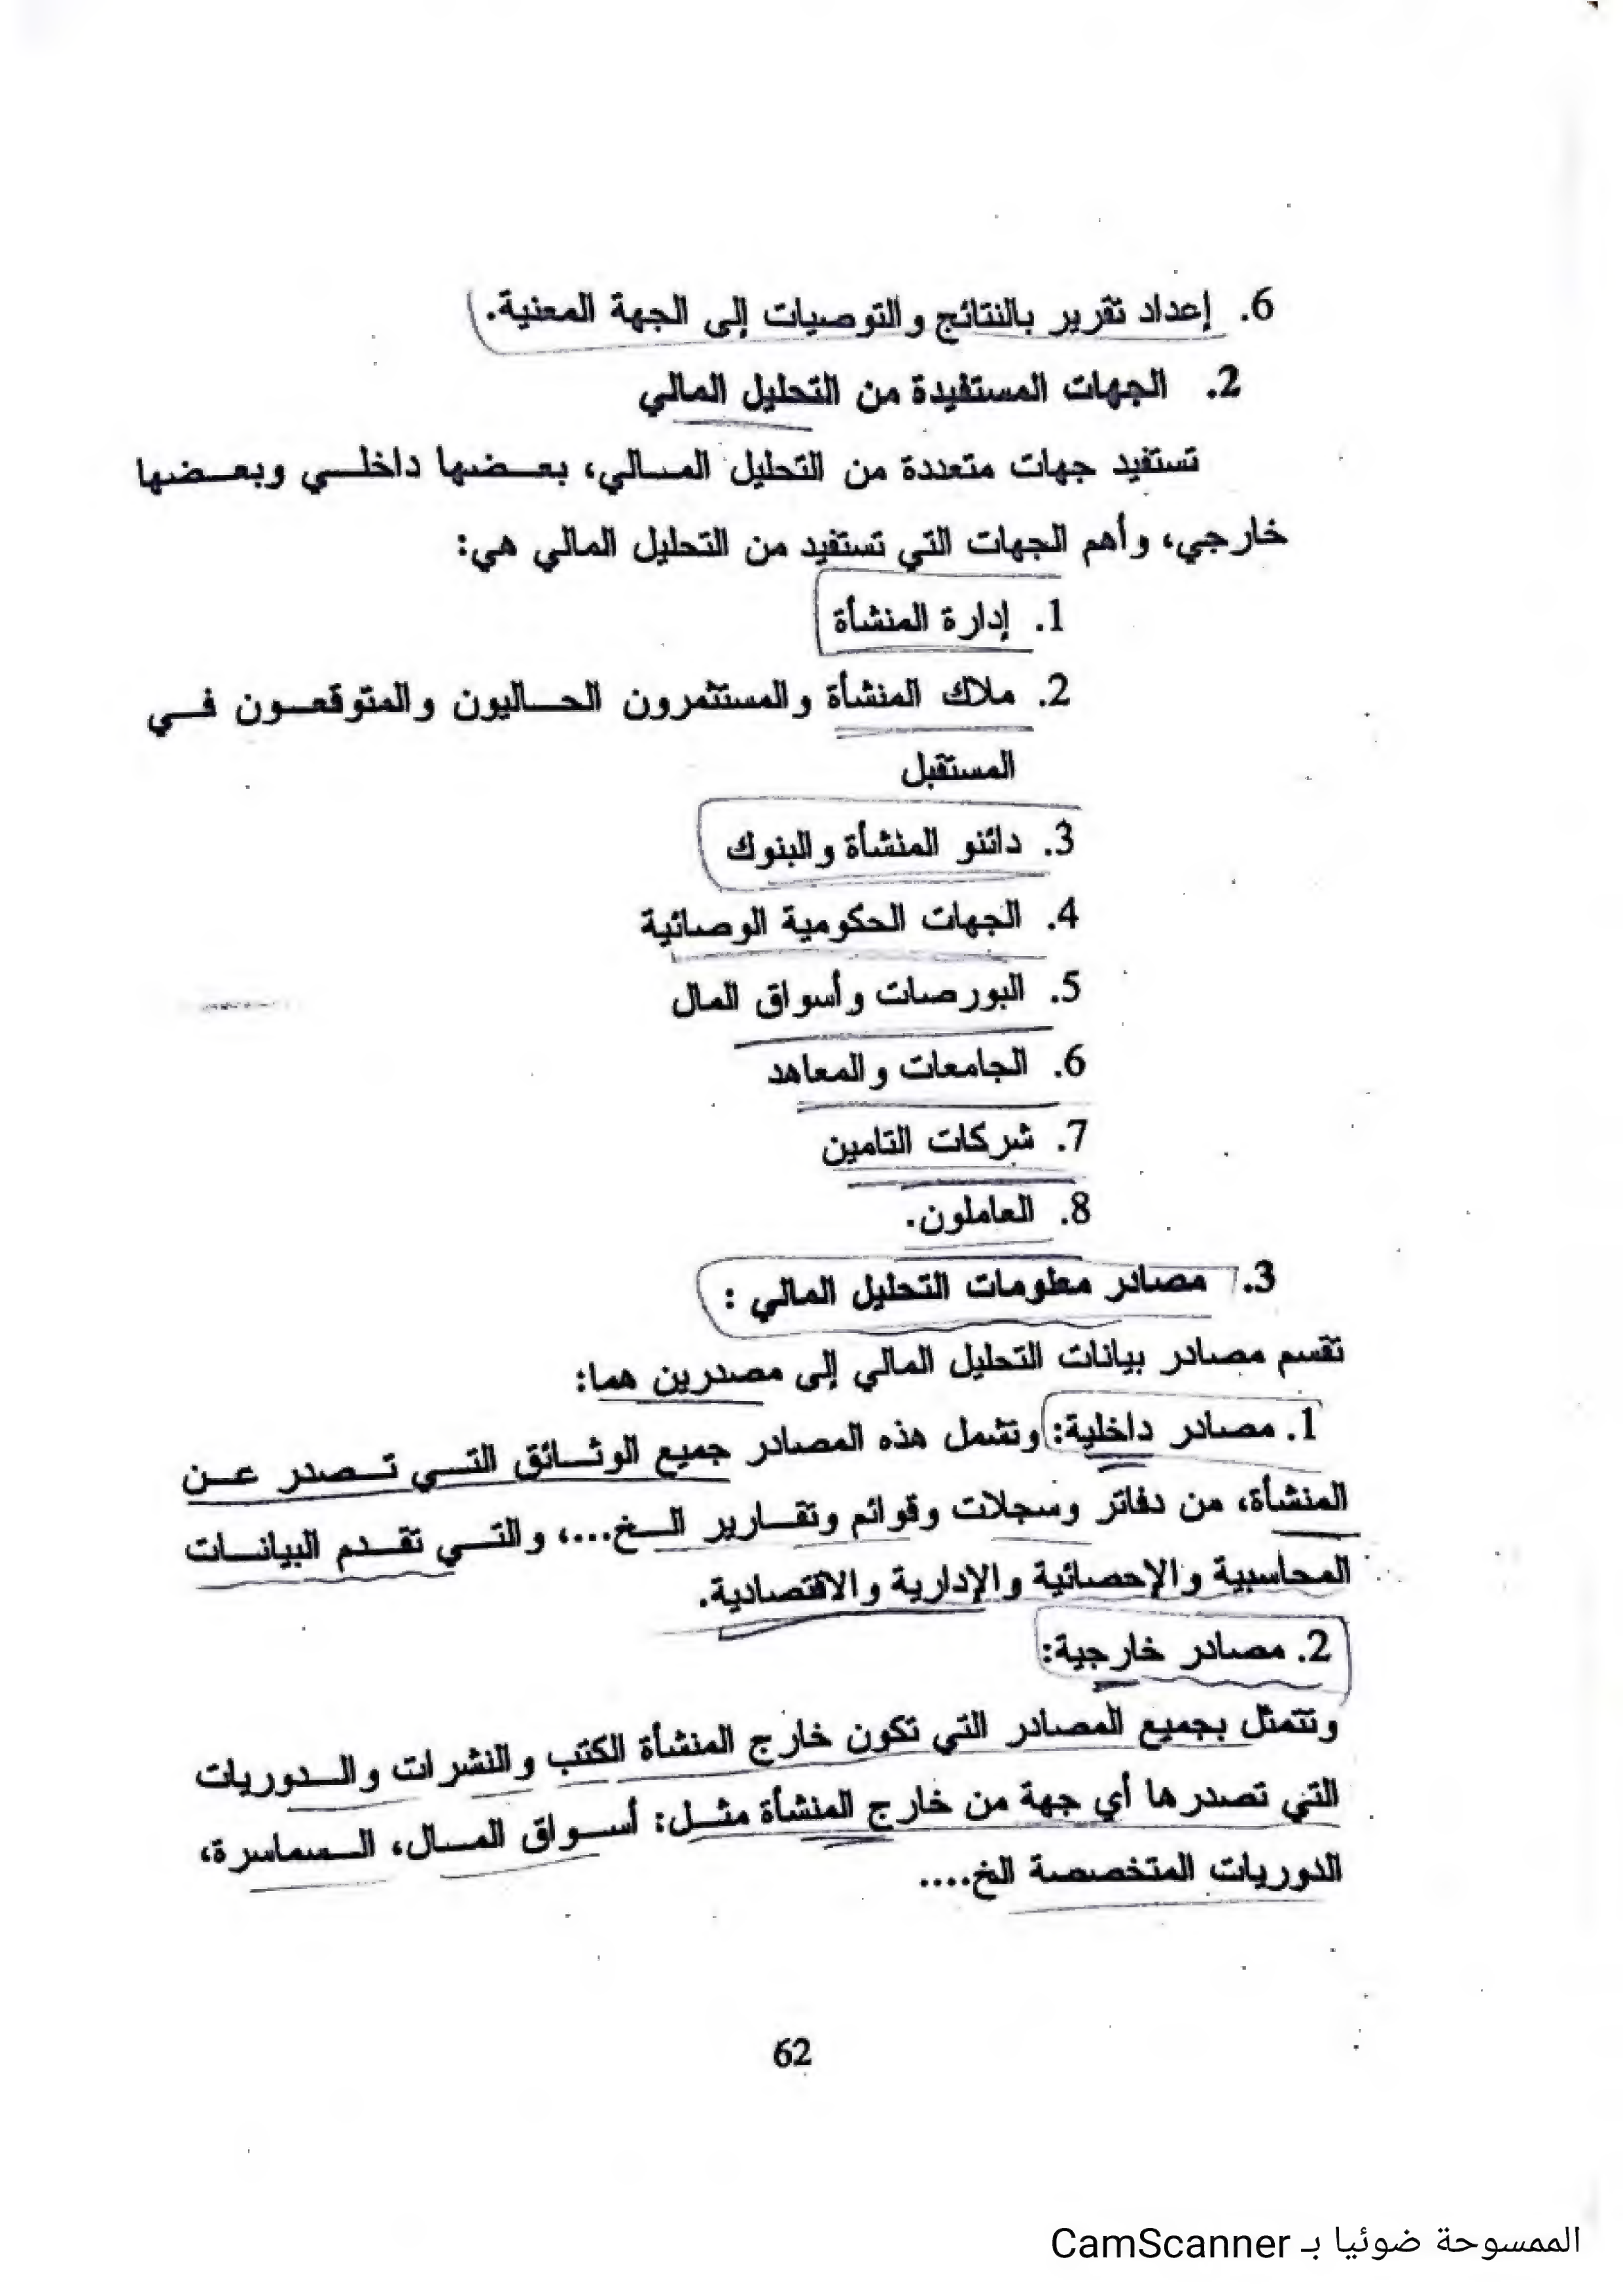 6. إعداد تقرير بالنتائج والتوصيات إلى الجهة المعنية.
2. الجهات المستفيدة من التحليل المالي
تستفيد جهات متعددة من التحليل المالي، بعضها داخلي وبعضها
خارجي، وأهم الجهات التي تستفيد من التحليل المالي هي:
1. إدارة المنشأة
2. ملاك المنشأة والمستثمرون الحاليون والمتوقعون في
المستقبل
3. دائنو المنشأة والبنوك
4. الجهات الحكومية الوصائية
5. البورصات وأسواق المال
6. الجامعات والمعاهد
7. شركات التامين
8. العاملون.
3. مصادر معلومات التحليل المالي :
تقسم مصادر بيانات التحليل المالي إلى مصدرين هما:
1. مصادر داخلية: وتشمل هذه المصادر جميع الوثائق التي تصدر عن
المنشأة، من دفاتر وسجلات وقوائم وتقارير الخ...، والتي تقدم البيانات
المحاسبية والإحصائية والإدارية والاقتصادية.
2. مصادر خارجية:
وتتمثل بجميع المصادر التي تكون خارج المنشأة الكتب والنشرات والدوريات
التي تصدرها أي جهة من خارج المنشأة مثل: أسواق المال، السماسرة،
الدوريات المتخصصة الخ....
62
الممسوحة ضوئيا بـ CamScanner